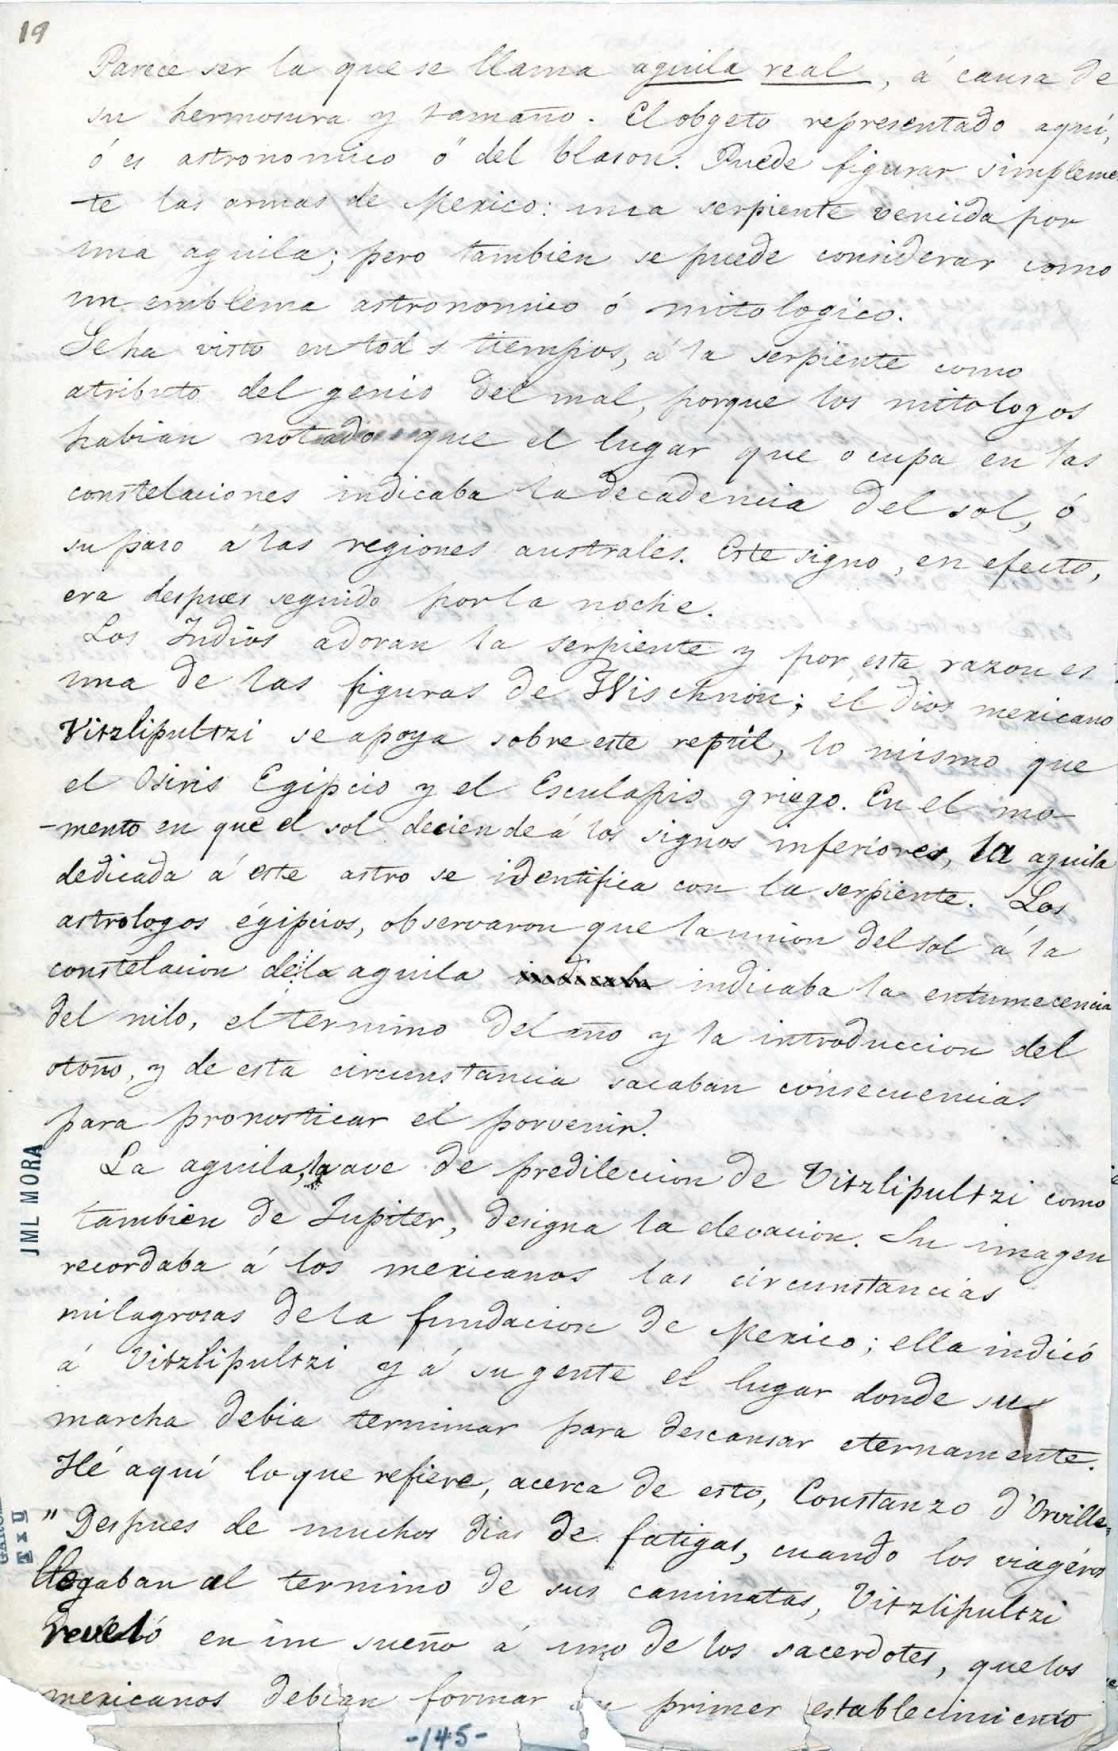 19
Parece ser la que se llama aguila real, á causa de
su hermosura y tamaño. El obgeto representado aquí,
ó es astronomico ó del blason. Puede figurar simpleme
-te las armas de Mexico: una serpiente vencida por
una aguila; pero tambien se puede considerar como
un emblema astronomico ó mitologico.
Se ha visto en tod s tiempos, á la serpiente como
atributo del genio del mal, porque los mitologos
habian notado que el lugar que ocupa en las
constelaciones indicaba la decadencia del sol, ó
su paso á las regiones australes. Este signo, en efecto,
era despues seguido por la noche.
Los Indios adoran la serpiente y por esta razon es
una de las figuras de Wischnou; el dios mexicano
Vitzlipultzi se apoya sobre este reptil, lo mismo que
el Osiris Egipcio y el Esculapio griego. En el mo-
-mento en que el sol deciende á los signos inferiores, la aguila
dedicada á este astro se identifica con la serpiente. Los
astrologos égipcios, observaron que la union del sol á la
constelacion de la aguila indicaba la entumecencia
del nilo, el termino del año y la introduccion del
otoño, y de esta circunstancia sacaban consecuencias
para pronosticar el porvenir.
La aguila, la ave de predileccion de Vitzlipultzi como
tambien de Jupiter, designa la elevacion. Su imagen
recordaba á los mexicanos las circunstancias
milagrosas de la fundacion de Mexico; ella indicó
á Vitzlipultzi y á su gente el lugar donde su
marcha debia terminar para descansar eternamente.
Hé aquí lo que refiere, acerca de esto, Constanzo d'Orville.
"Despues de muchos dias de fatigas, cuando los viagéros
llegaban al termino de sus caminatas, Vitzlipultzi
reveló en un sueño á uno de los sacerdotes, que los
mexicanos debian formar su primer establecimiento
-145-
JML MORA